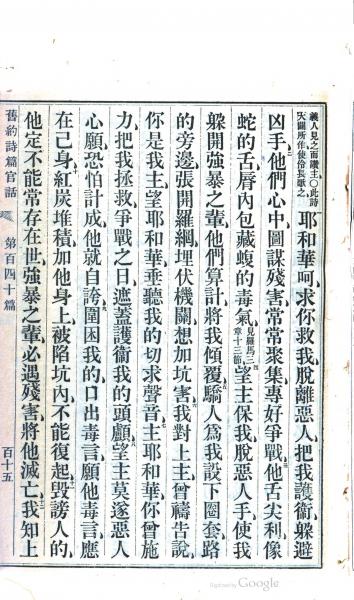 義人見之而讚主○此詩
大闢所作使伶長歌之
耶和華呵求你救我脫離惡人把我護衞躲避
凶手他們心中圖謀殘害常常聚集專好爭戰他舌尖利像
蛇的舌脣內包藏蝮的毒氣見羅馬三章十三節望主保我脫惡人手使我
躲開強暴之輩他們算計將我傾覆驕人爲我設下圈套路
的旁邊張開羅網埋伏機關想加坑害我對上主曾禱告說
你是我主望耶和華垂聽我的切求聲音主耶和華你曾施
力把我拯救爭戰之日遮蓋護衞我的頭顱望主莫遂惡人
心願恐怕計成他就自誇圍困我的口出毒言願他毒言應
在己身紅炭堆積加他身上被陷坑內不能復起毀謗人的
他定不能常存在世強暴之輩必遇殘害將他滅亡我知上
舊約詩篇官話 第百四十篇 百十五
Digitized by Google